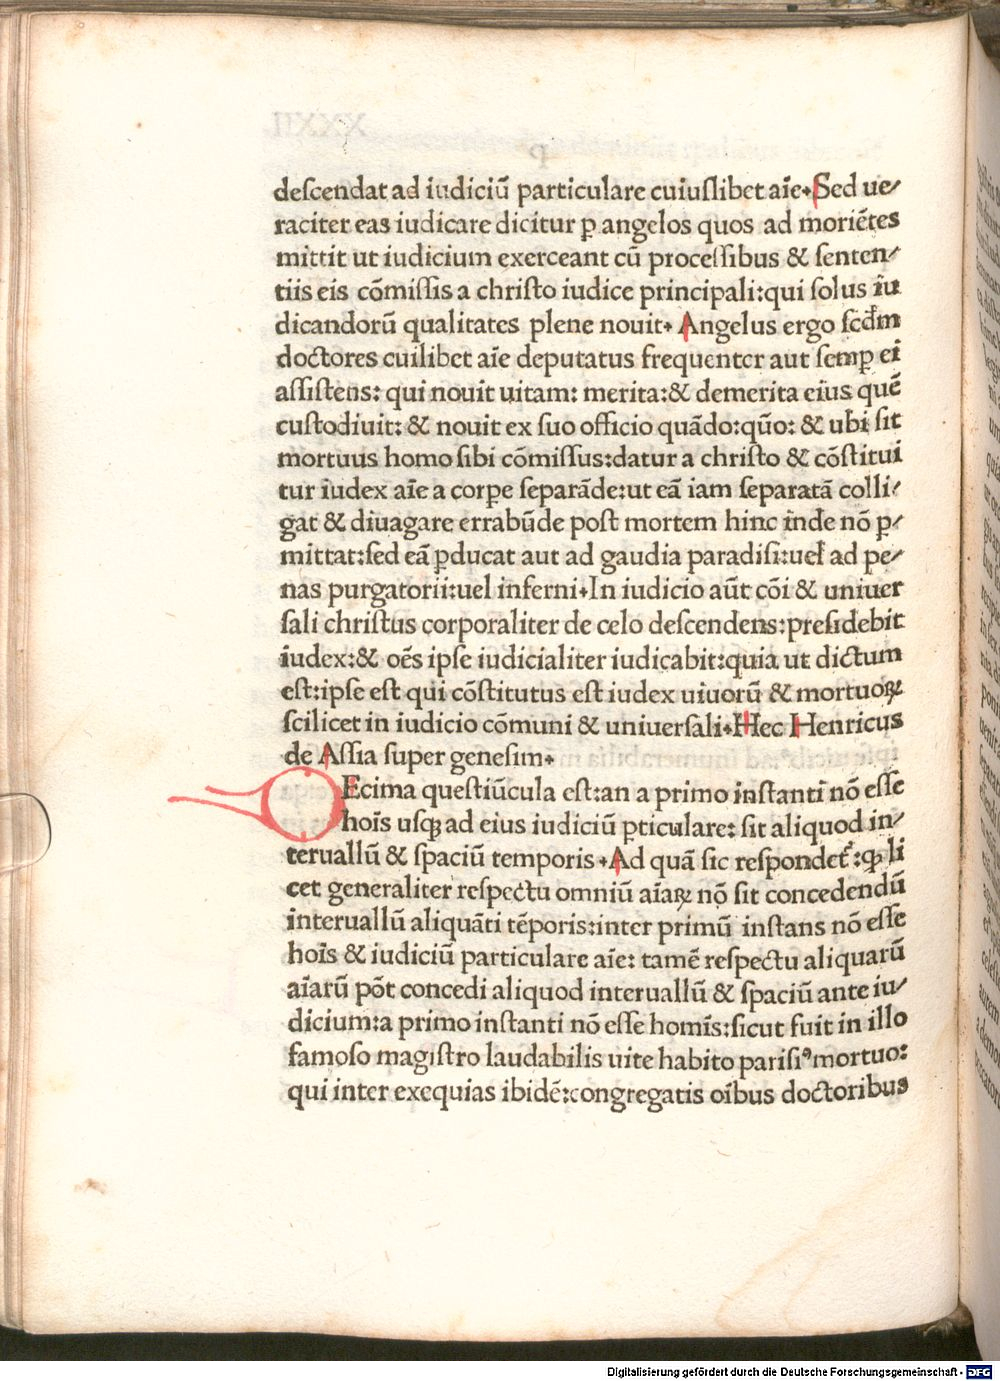 deſcendat ad iudiciū particulare cuiuſlibet aīe. Sed ue⸗
raciter eas iudicare dicitur ꝑ angelos quos ad moriētes
mittit ut iudicium exerceant cū proceſſibus & ſenten⸗
tiis eis cōmiſſis a chriſto iudice principali:qui ſolus iu
dicandorū qualitates plene nouit. Angelus ergo ſcd̄m
doctores cuilibet aīe deputatus frequenter aut ſemꝑ ei
aſſiſtens: qui nouit uitam: merita:& demerita eius quē
cuſtodiuit: & nouit ex ſuo officio quādo:quō: & ubi ſit
mortuus homo ſibi cōmiſſus:datur a chriſto & cōſtitui
tur iudex aīe a corꝑe ſeparāde:ut eā iam ſeparatā colli⸗
gat & diuagare errabūde poſt mortem hinc inde nō ꝑ⸗
mittat:ſed eā ꝑducat aut ad gaudia paradiſi:uel ad pe⸗
nas purgatorii:uel inferni. In iudicio aūt cōi & uniuer
ſali chriſtus corporaliter de celo deſcendens:preſidebit
iudex:& oēs ipſe iudicialiter iudicabit:quia ut dictum
eſt:ipſe eſt qui cōſtitutus eſt iudex uiuorū & mortuoꝝ
ſcilicet in iudicio cōmuni & uniuerſali. Hec Henricus
de Aſſia ſuper geneſim.
DEcima queſtiūcula eſt:an a primo inſtanti nō eſſe
hoīs uſqꝫ ad eius iudiciū ꝑticulare: ſit aliquod in⸗
teruallū & ſpaciū temporis. Ad quā ſic reſpondet᷑:ꝙ li
cet generaliter reſpectu omniū aīaꝝ nō ſit concedendū
interuallū aliquāti tēporis:inter primū inſtans nō eſſe
hoīs & iudiciū particulare aīe: tamē reſpectu aliquarū
aīarū pōt concedi aliquod interuallū & ſpaciū ante iu⸗
dicium:a primo inſtanti nō eſſe homīs:ſicut fuit in illo
famoſo magiſtro laudabilis uite habito pariſiꝰ mortuo:
qui inter exequias ibidē:congregatis oībus doctoribus
Digitalisierung gefördert durch die Deutsche Forschungsgemeinschaft - DFG